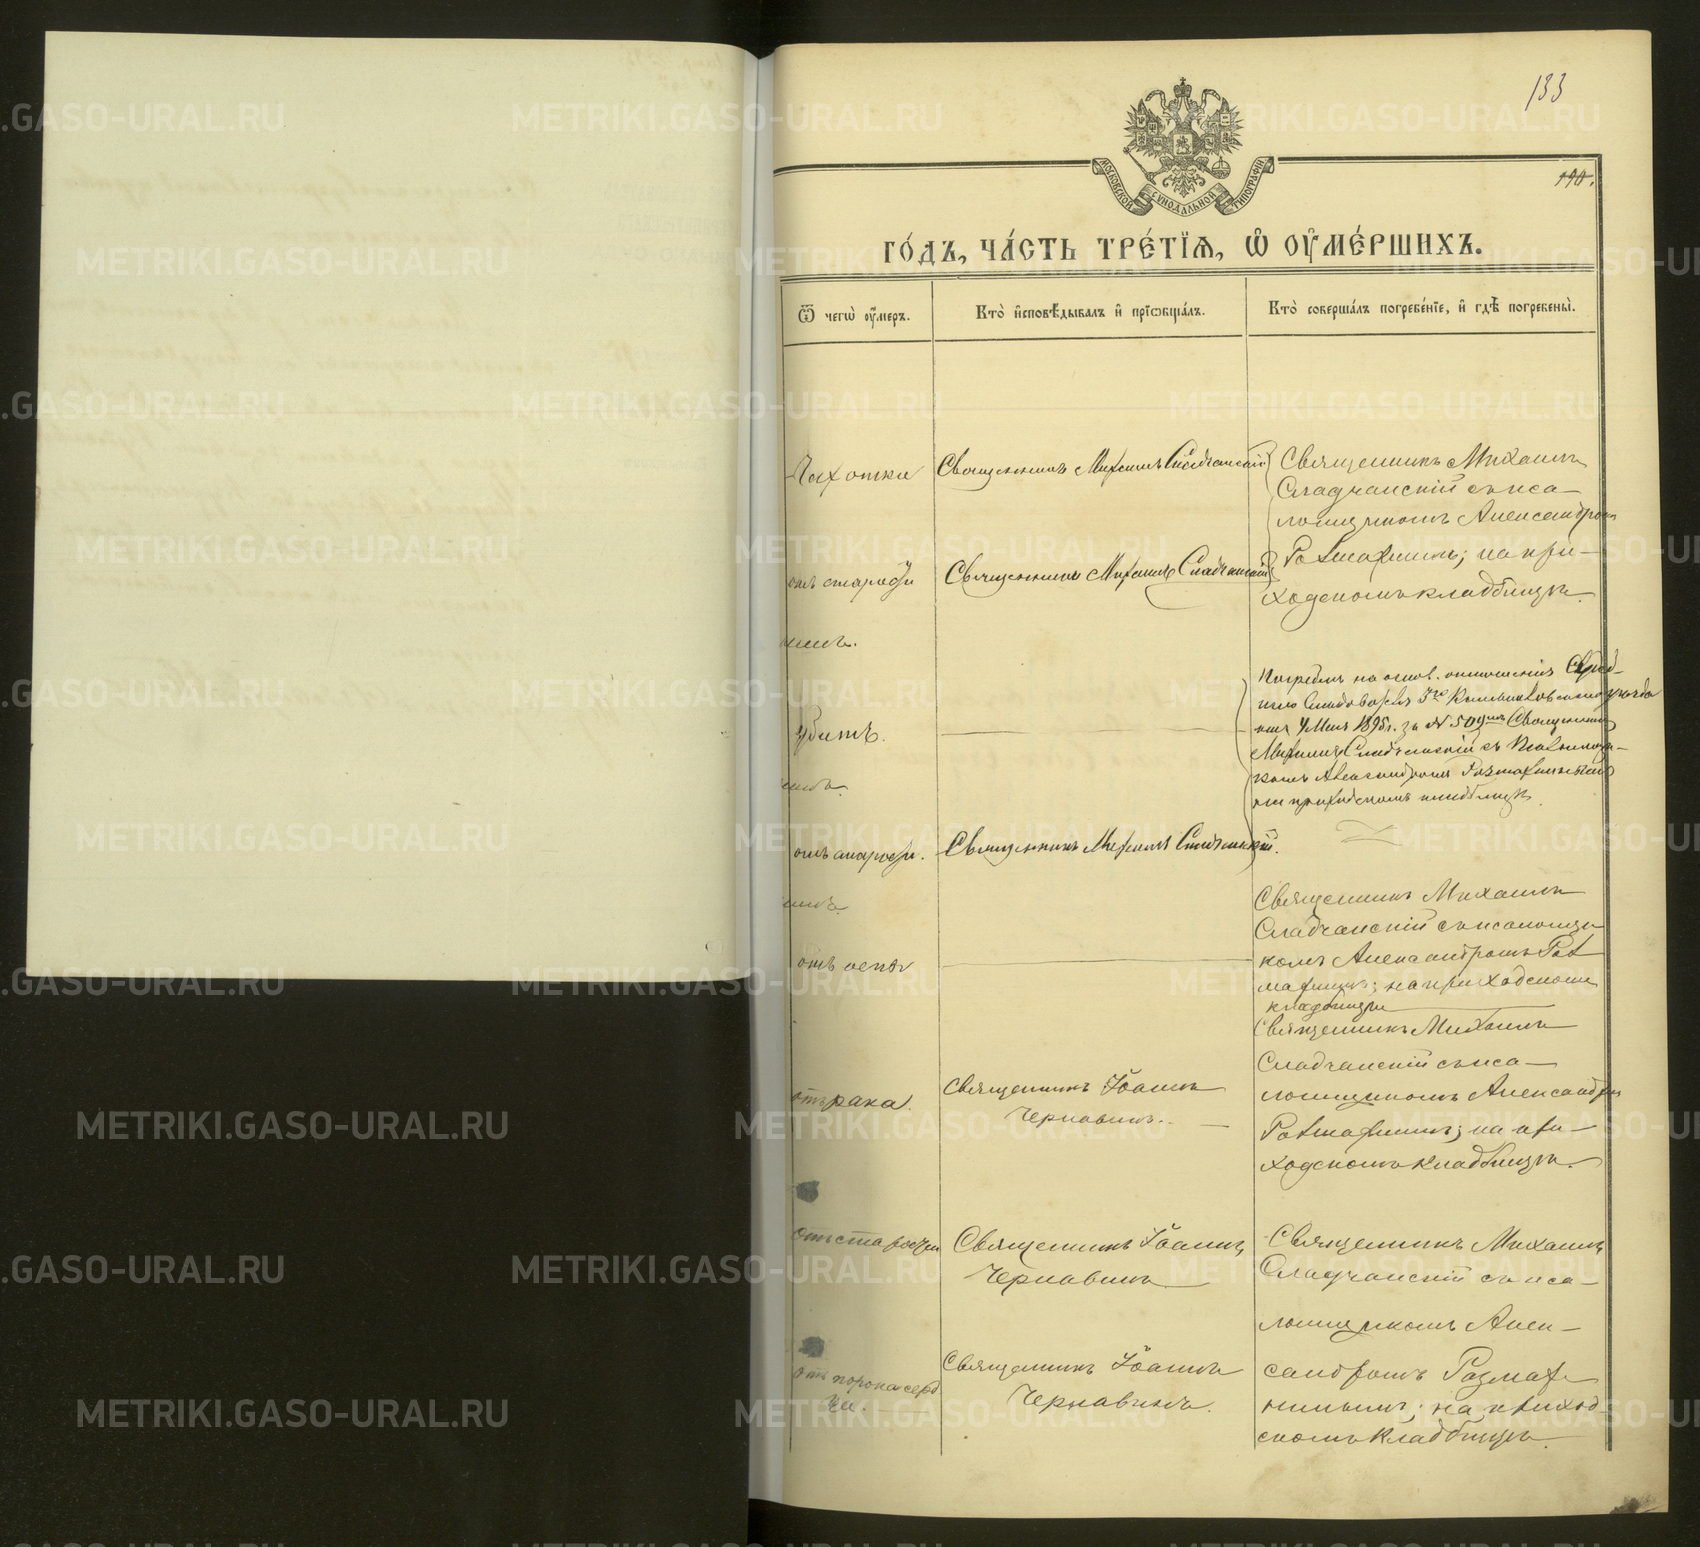 133
190.
МОСКОВСКОЙ СѴНОДАЛЬНОЙ ТИПОГРАФІИ
ГО́ДЪ, ЧА́СТЬ ТРЕ́ТЇѦ, Ѡ҆ ОУ҆МЕ́РШИХЪ.
Ѿ чегѡ̀ оу҆́меръ.
Кто̀ и҆сповѣ́дывалъ и҆ прїѡбща́лъ.
Кто̀ соверша́лъ погребе́нїе, и҆ гдѣ̀ погребены̀.
Чахотки
Священникъ Михаилъ Сладчанскій
Священникъ Михаилъ
Сладчанскій съ пса-
ломщикомъ Александромъ
на при-
ходскомъ кладбищѣ.
отъ старости
Священникъ Михаилъ Сладчанскій
убитъ.
Погребенъ на основ. отношенія
1895г. за № 509 Священникъ
Михаилъ Сладчанскій съ Псаломщи-
комъ Александромъ
на приходскомъ кладбищѣ.
отъ старости.
Священникъ Михаилъ Сладчанскій.
Священникъ Михаилъ
Сладчанскій съ псаломщи
комъ Александромъ
на приходскомъ
кладбищѣ
отъ оспы
Священникъ Михаилъ
Сладчанскій съ пса-
ломщикомъ Александромъ
на при-
ходскомъ кладбищѣ.
отъ рака.
Священникъ Іоаннъ
Чернавинъ.
отъ старости
Священникъ Іоаннъ
Чернавинъ
Священникъ Михаилъ
Сладчанскій съ пса-
ломщикомъ Алек-
сандромъ
на приход
скомъ кладбищѣ.
отъ порока серд
ца.
Священникъ Іоаннъ
Чернавинъ.
METRIKI.GASO-URAL.RU